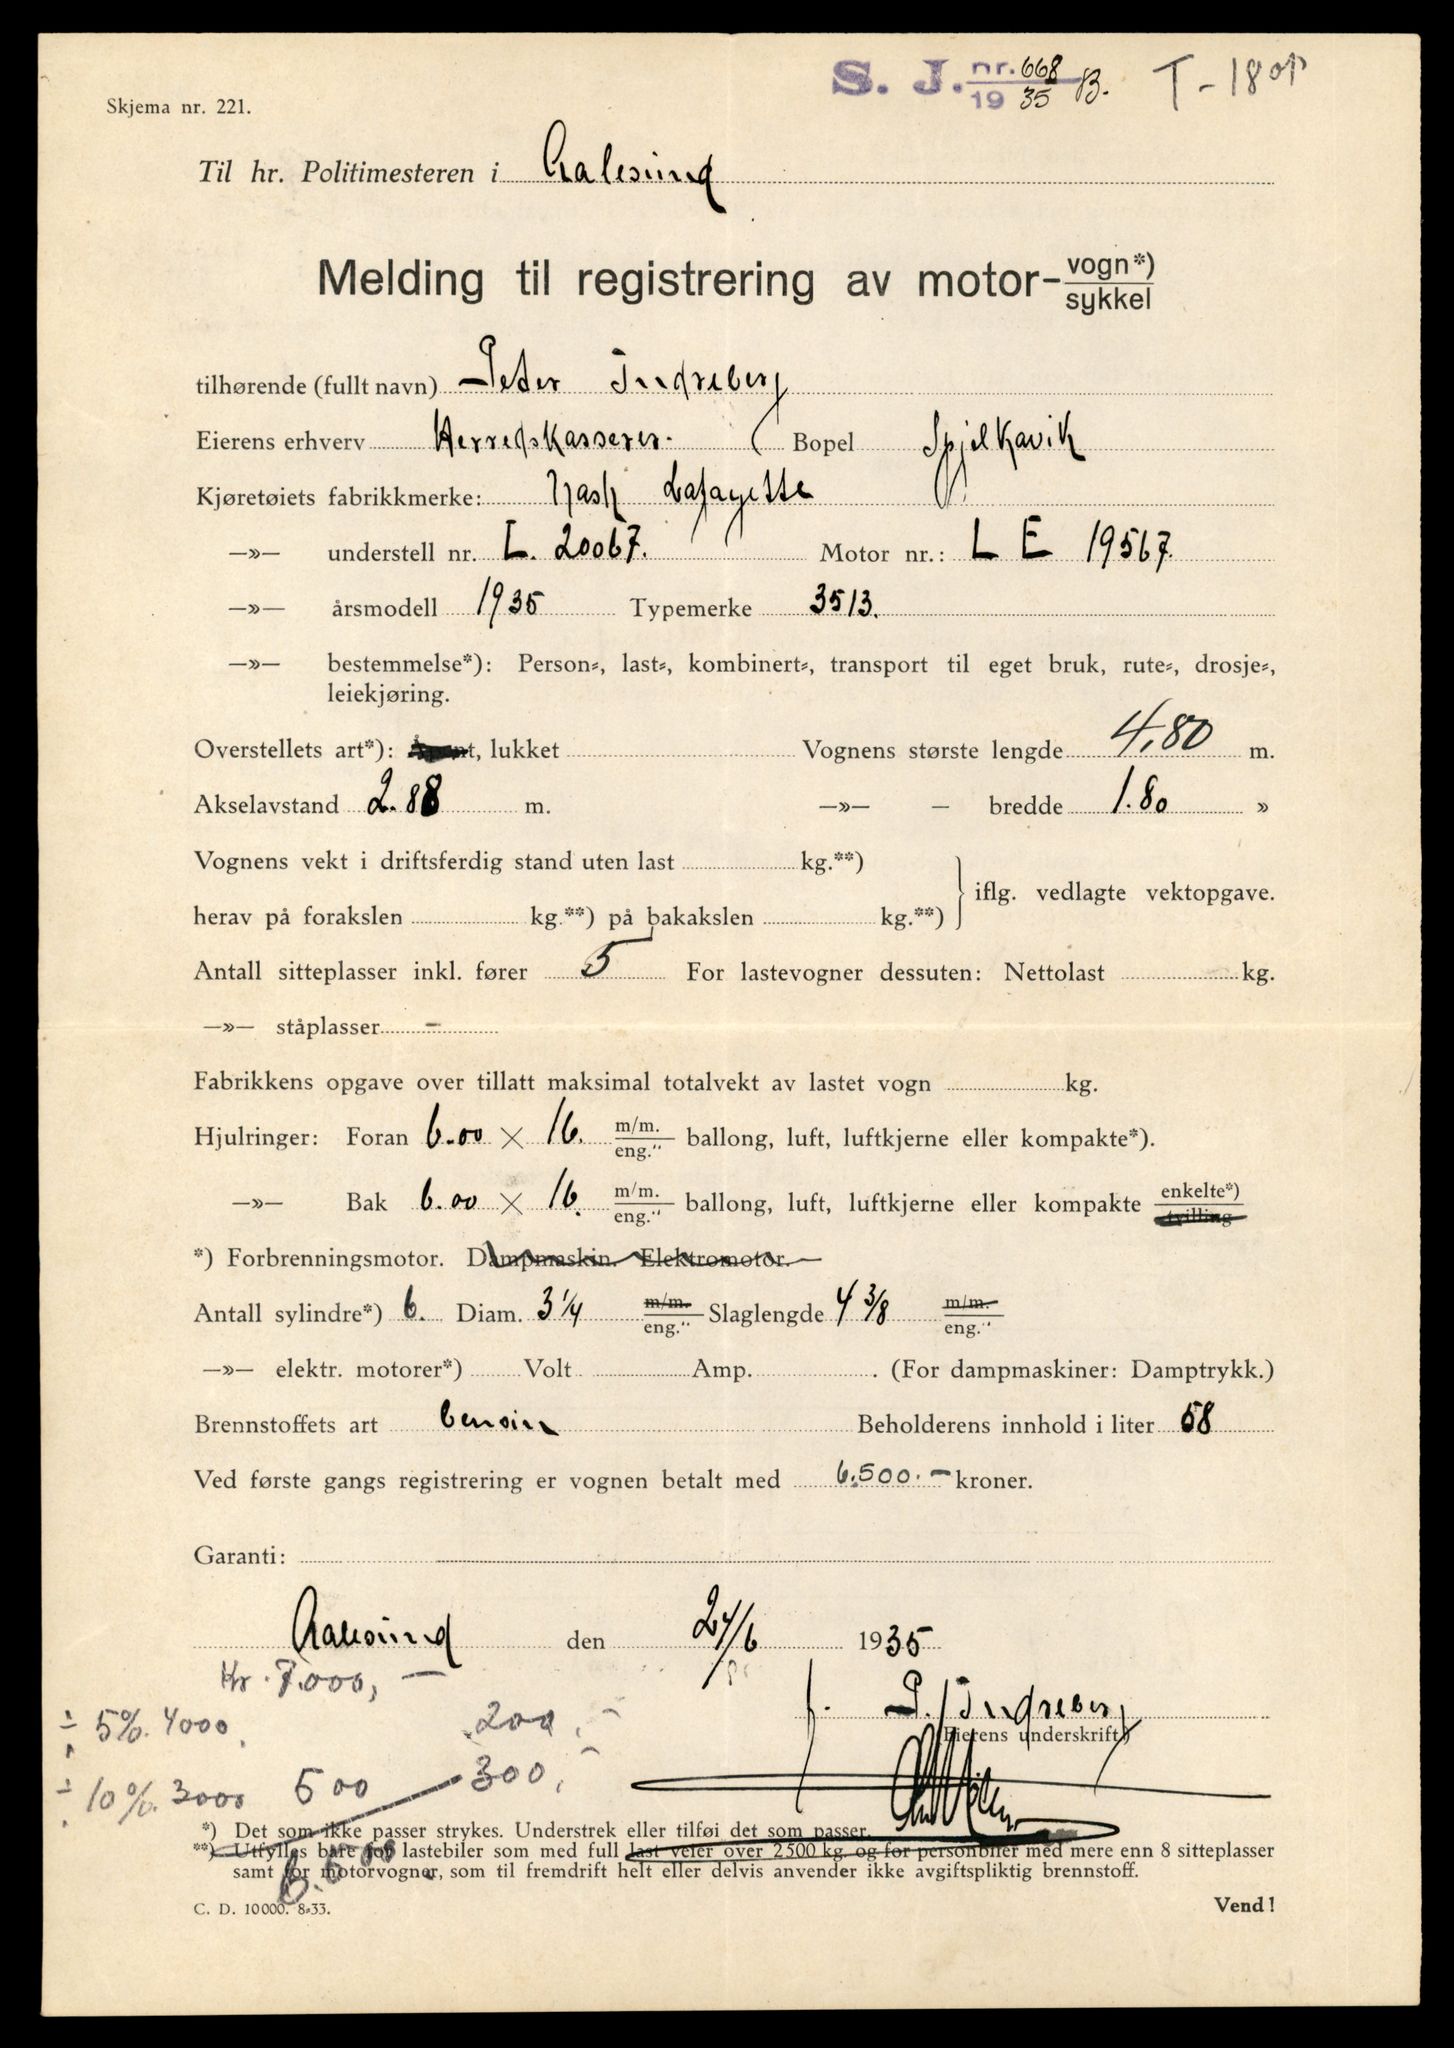 S. J. nr. 668 B. T-18
19 35
Skjema nr. 221.
Til hr. Politimesteren i Aalesund
Melding til registrering av motor- vogn*) sykkel
tilhørende (fullt navn) Peter Indreberg
Eierens erhverv Herredskasserer. Bopel Spjelkavik
Kjøretøiets fabrikkmerke: Nash Lafayette
—»— understell nr. L. 20067. Motor nr.: L E 19567.
—»— årsmodell 1935 Typemerke 3513.
—»— bestemmelse*): Person-, last-, kombinert-, transport til eget bruk, rute-, drosje-,
leiekjøring.
Overstellets art*): Åpent, lukket Vognens største lengde 4,80 m.
Akselavstand 2.88 m. —»— — bredde 1.80 »
Vognens vekt i driftsferdig stand uten last kg.**)
herav på forakslen kg.**) på bakakslen kg.**) iflg. vedlagte vektopgave.
Antall sitteplasser inkl. fører 5 For lastevogner dessuten: Nettolast kg.
—»— ståplasser –
Fabrikkens opgave over tillatt maksimal totalvekt av lastet vogn kg.
Hjulringer: Foran 6.00 × 16. m/m. eng." ballong, luft, luftkjerne eller kompakte*).
—»— Bak 6.00 × 16. m/m. eng." ballong, luft, luftkjerne eller kompakte enkelte*) tvilling
*) Forbrenningsmotor. Dampmaskin. Elektromotor.
Antall sylindre*) 6. Diam. 3 1/4 m/m. eng." Slaglengde 4 3/8 m/m. eng."
—»— elektr. motorer*) Volt Amp. . (For dampmaskiner: Damptrykk.)
Brennstoffets art bensin Beholderens innhold i liter 58
Ved første gangs registrering er vognen betalt med 6.500.– kroner.
Garanti:
Aalesund den 24/6 1935
Kr. 7.000,—
P. Indreberg
÷ 5%. 4000, 200,–
(Eierens underskrift)
÷ 10%. 3000 500 300,–
*) Det som ikke passer strykes. Understrek eller tilføi det som passer.
**) Utfylles bare for lastebiler som med full last veier over 2500 kg. og for personbiler med mere enn 8 sitteplasser
samt for motorvogner, som til fremdrift helt eller delvis anvender ikke avgiftspliktig brennstoff.
6.500.
C. D. 10000. 8-33. Vend!